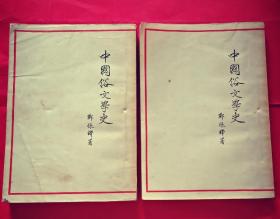 中國俗文學史
鄭振鐸著
中國俗文學史
鄭振鐸著